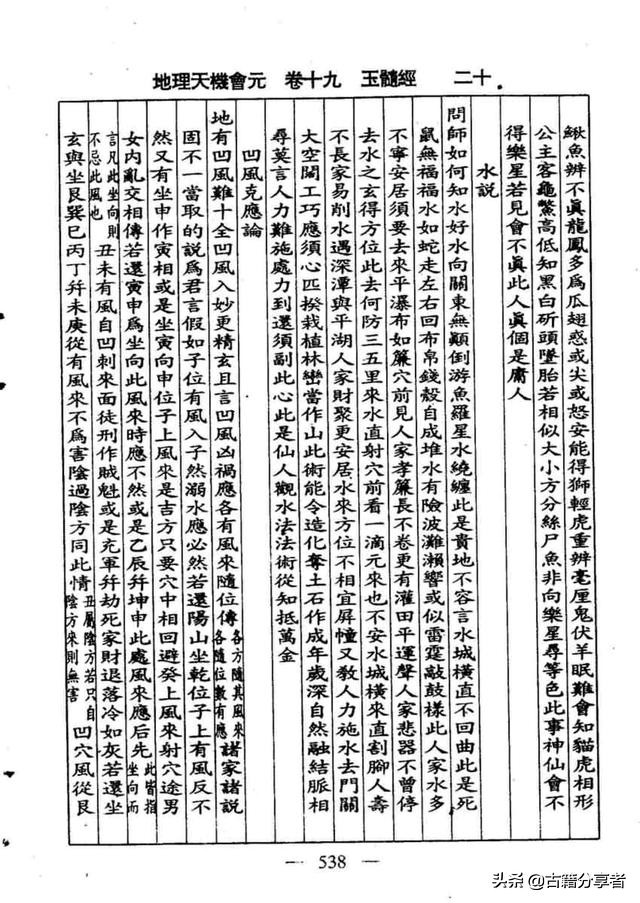 地理天機會元　卷十九　玉髓經　二十
鰍魚辨不眞龍鳳多爲瓜翅惑或尖或怒安能得獅輕虎重辨毫厘鬼伏羊眠難會知貓虎相形
公主客龜鱉高低知黑白斫頭墜胎若相似大小方分絲尸魚非向樂星尋等色此事神仙會不
得樂星若見會不眞此人眞個是庸人
水説
問師如何知水好水向關東無顛倒游魚羅星水繞纏此是貴地不容言水城橫直不回曲此是死
鼠無福福水如蛇走左右回布帛錢穀自成堆水有險波灘瀨響或似雷霆敲鼓樣此人家水多
不寧安居須要去來平瀑布如簾穴前見人家孝簾長不卷更有灌田平運聲人家悲器不曾停
去水之玄得方位此去何防三五里來水直射穴前看一滴元來也不安水城橫來直割腳人壽
不長家易削水遇深潭與平湖人家財聚更安居水來方位不相宜屏幢又教人力施水去門關
大空闊工巧應須心匹揆栽植林巒當作山此術能令造化奪土石作成年歲深自然融結脈相
尋莫言人力難施處力到還須副此心此是仙人觀水法法術從知抵萬金
凹風克應論
地有凹風難十全凹風入妙更精玄且言凹風凶禍應各有風來隨位傳各方隨其風來各隨位數有應諸家諸説
固不一當取的説爲君言假如子位有風入子然溺水應必然若還陽山坐乾位子上有風反不
然又有坐申作寅相或是坐寅向申位子上風來是吉方只要穴中相回避癸上風來射穴途男
女內亂交相傳若還寅申爲坐向此風來時應不然或是乙辰幷坤申此處風來應后先此皆指坐向而
言凡此坐向則不忌此風也丑未有風自凹刺來面徒刑作賊魁或是充軍幷劫死家財退落冷如灰若還坐
玄與坐艮巽巳丙丁幷未庚從有風來不爲害陰過陰方同此情丑屬陰方若只自陰方來則無害凹穴風從艮
— 538 —
头条 @古籍分享者